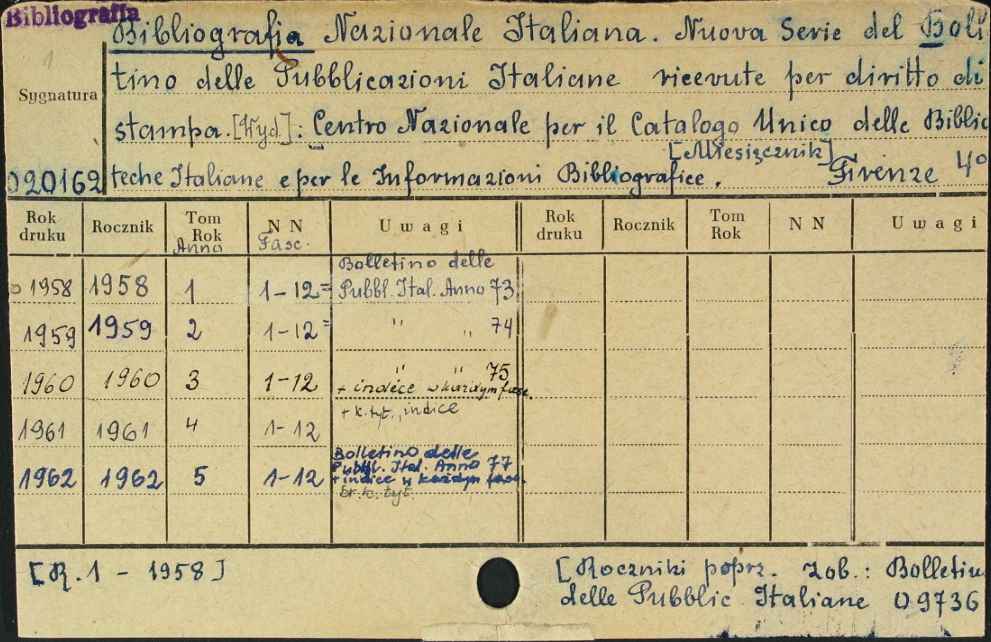 Bibliografia
Bibliografia Nazionale Italiana. Nuova Serie del Boll
1
tino delle Pubblicazioni Italiane ricevute per diritto di
Sygnatura
stampa. [Wyd]: Centro Nazionale per il Catalogo Unico delle Biblio
[Miesięcznik]
020162 teche Italiane e per le Informazioni Bibliografice. Firenze 4º
Rok druku Rocznik Tom Rok N N Uwagi Rok druku Rocznik Tom Rok N N Uwagi
Anno Fasc.
Bolletino delle
1958 1958 1 1-12= Pubbl. Ital. Anno 73
1959 1959 2 1-12= " " 74
1960 1960 3 1-12 " " 75
+ indice w każdym fasc.
+ k. tyt., indice
1961 1961 4 1-12
Bolletino delle
1962 1962 5 1-12 Pubbl. Ital. Anno 77
+ indice w każdym fasc.
br. k. tyt.
[R. 1 - 1958] [Roczniki poprz. zob.: Bolletin
delle Pubblic Italiane 09736